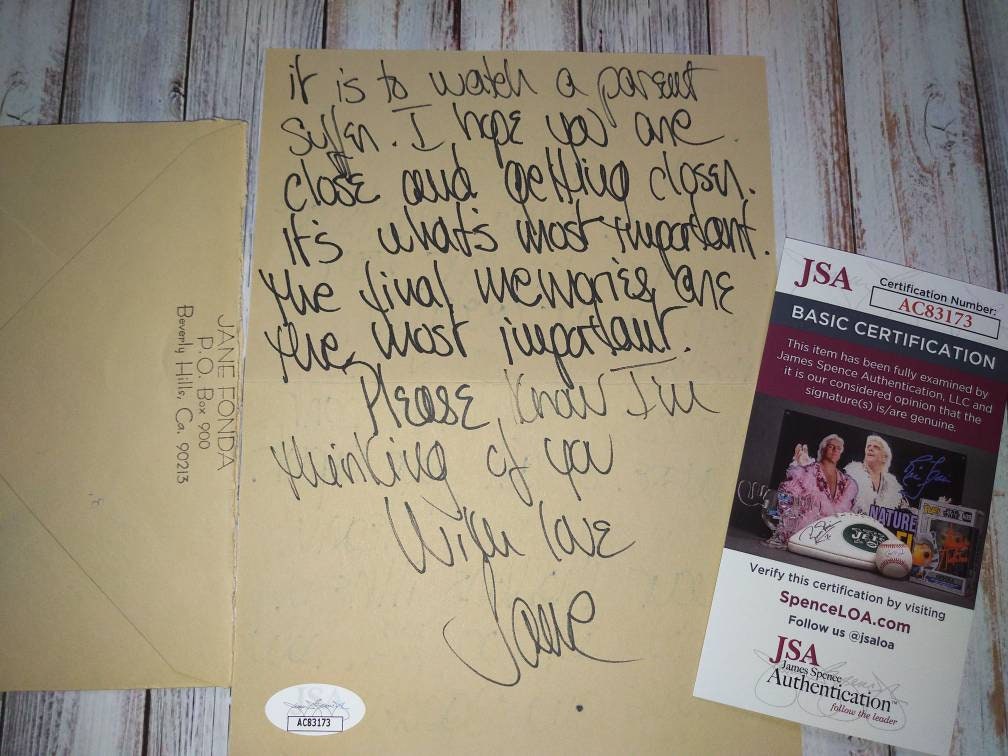 it is to watch a parent
suffer. I hope you are
close and getting closer.
It's what's most important.
the final memories are
the most important.
Please know I'm
thinking of you
With love
Jane
JANE FONDA
P.O. Box 900
Beverly Hills, Ca. 90213
JSA
AC83173
JSA
Certification Number:
AC83173
BASIC CERTIFICATION
This item has been fully examined by
James Spence Authentication, LLC and
it is our considered opinion that the
signature(s) is/are genuine.
NATURE
JETS
Verify this certification by visiting
SpenceLOA.com
Follow us @jsaloa
JSA
James Spence
Authentication™
follow the leader